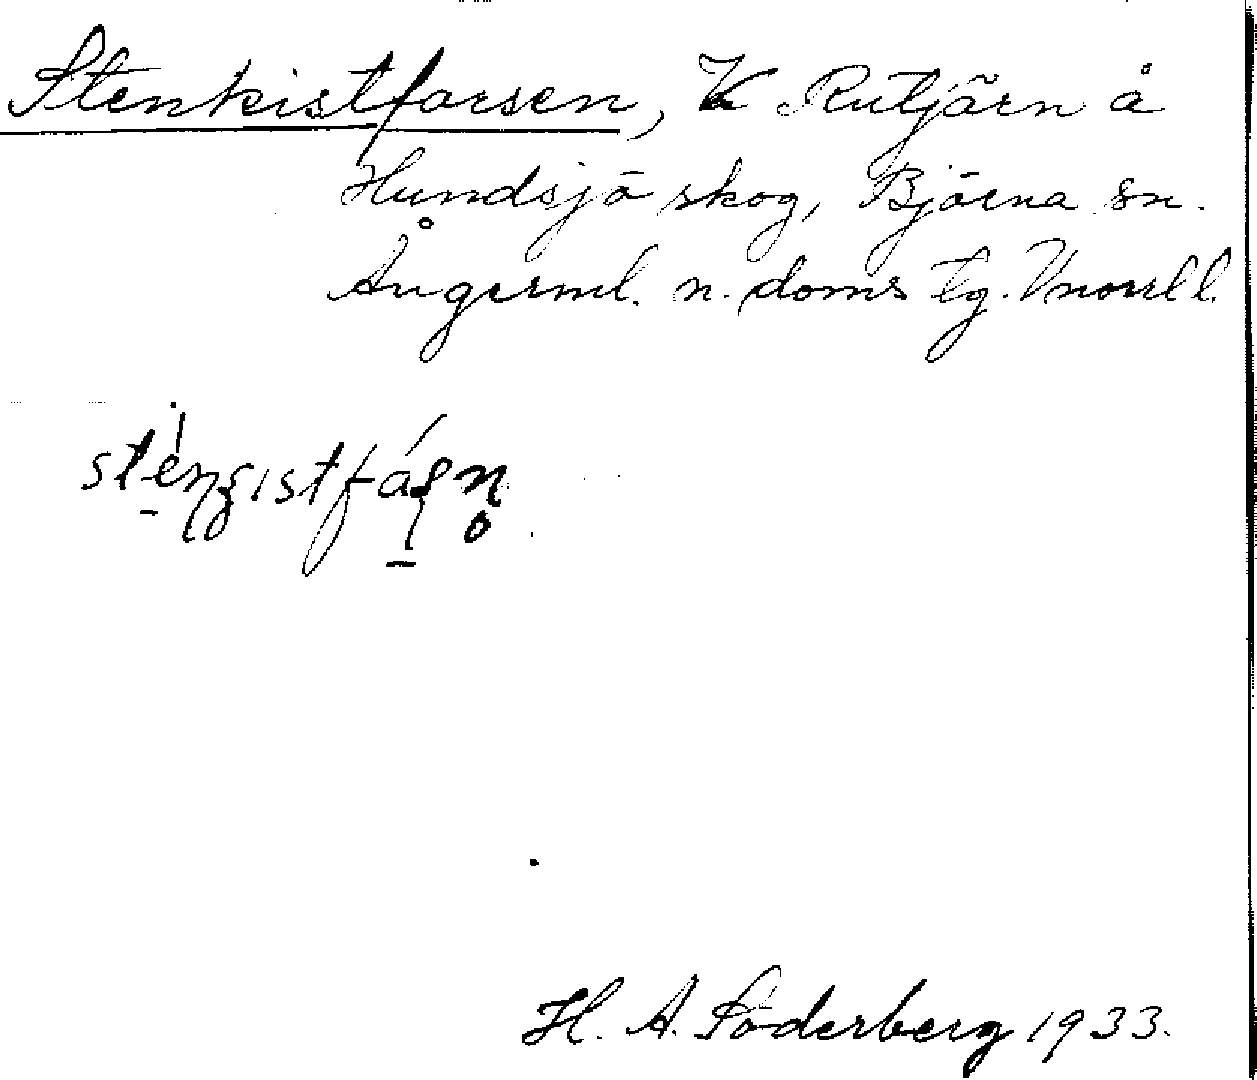 Stenkistforsen, V Rutjärn å
Hundsjö skog, Björna sn.
Ångerml. n. doms tg. Vnorrl l.
H. A. Söderberg 1933.